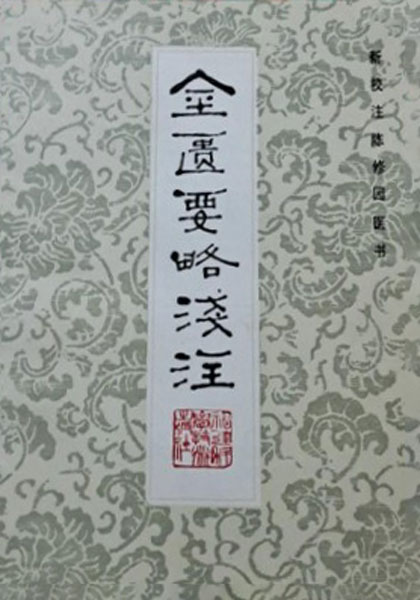 新校注陈修园医书
金匱要略淺注